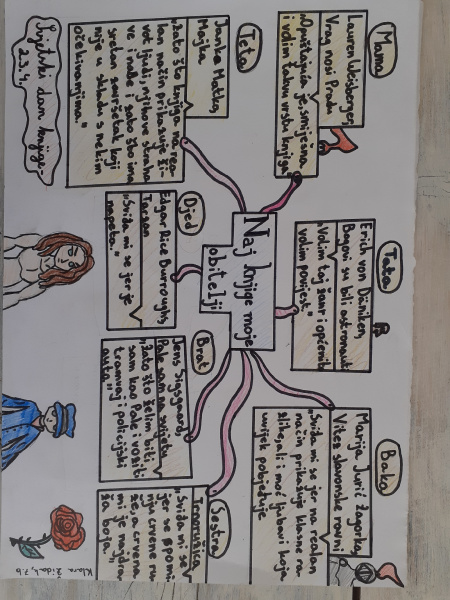 Naj knjige moje
obitelji
Mama
Lauren Weisberger,
Vrag nosi Pradu
"Opuštajuća je, smiješna
i volim takvu vrstu knjiga"
Tata
Erich von Däniken,
Bogovi su bili astronauti
"Volim taj žanr i općenito
volim povijest."
Baka
Marija Jurić Zagorka,
Vitez slavonske ravni
"Sviđa mi se jer na realan
način prikazuje klasne ra-
zlike, ali i moć ljubavi koja
uvijek pobjeđuje
Teta
Janko Matko,
Majka
"Zato što knjiga na rea-
lan način prikazuje ži-
vot ljudi, njihove straho-
ve i nade i zato što ima
sretan završetak koji
nije u skladu s nekim
očekivanjima."
Djed
Edgar Rice Burroughs,
Tarzan
"Sviđa mi se jer je
napeta."
Brat
Jens Sigsgaard,
Pale sam na svijetu
"Zato što želim biti
sam kao Pale i voziti
tramvaj i policijski
auto."
Sestra
Trnoružica
"Sviđa mi se
jer se spomi-
nju crvene ru-
že, a crvena
mi je najdra-
ža boja."
Svjetski dan knjige
23.4.
Klara Židak, 7.b